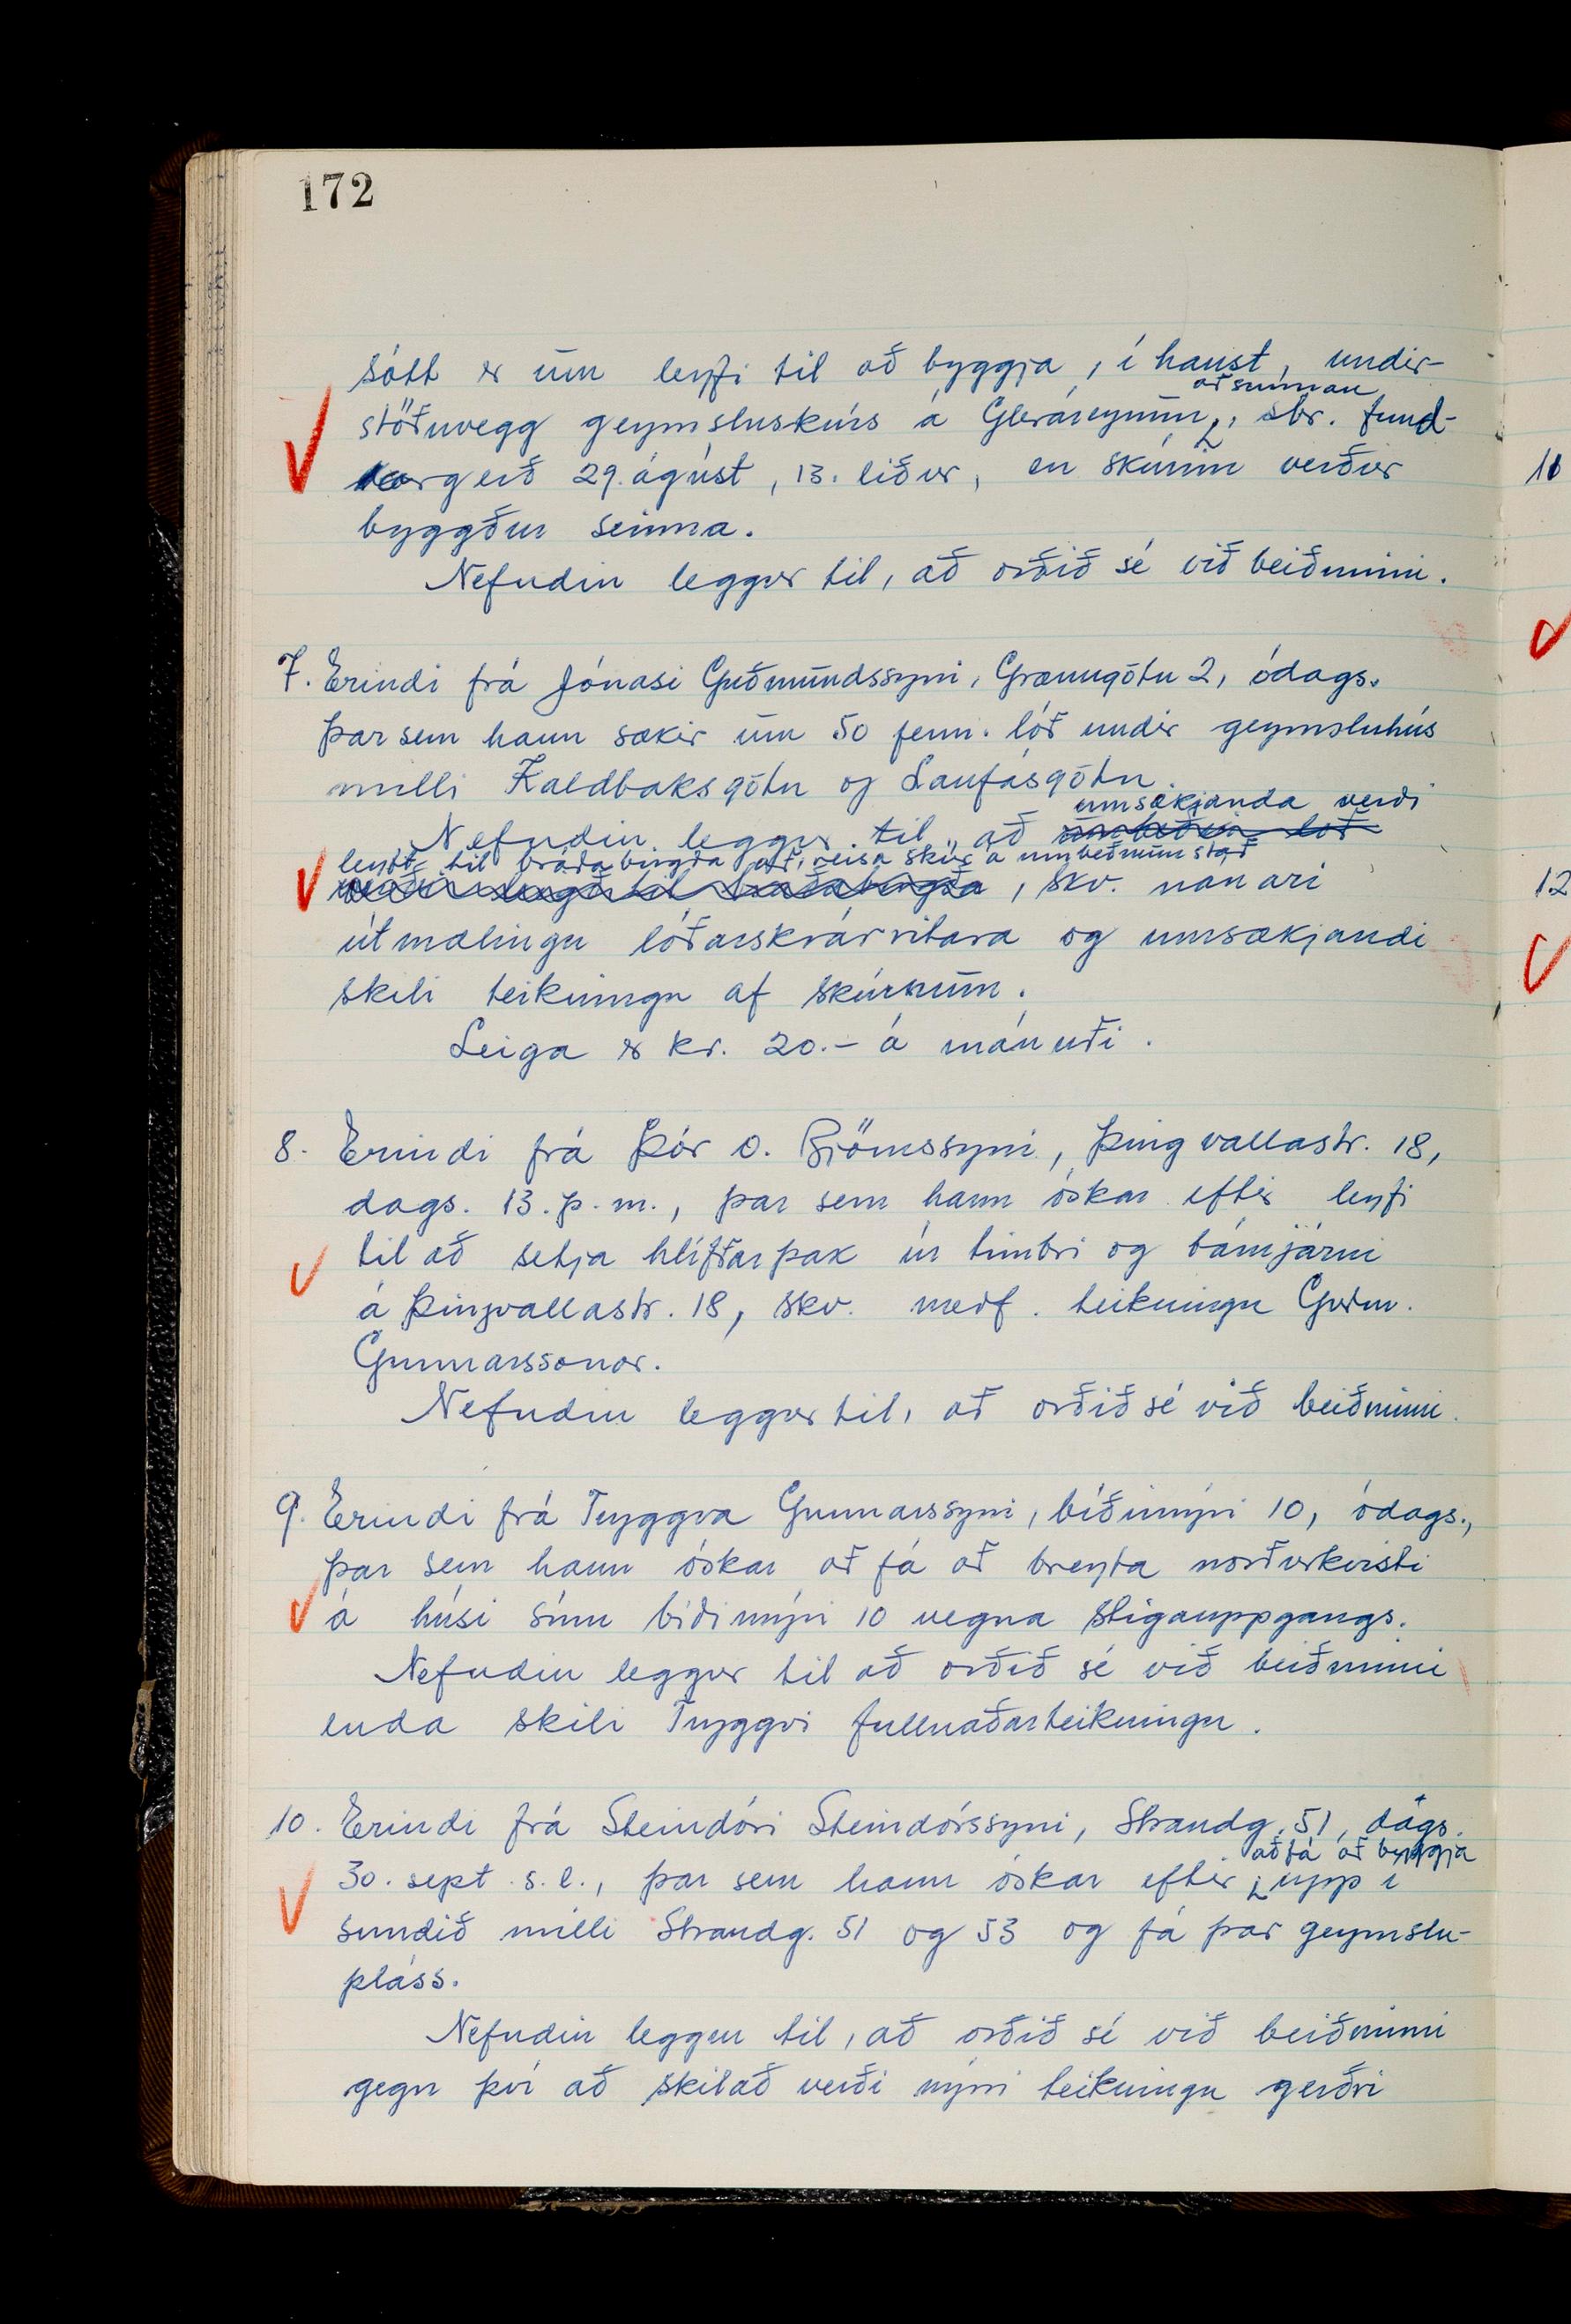 172
sótt er um leyfi til að byggja, í haust, undir-
að sunnan
stöðuvegg geymsluskúrs á Gleráreyrum, sbr. fund-
argerð 29. ágúst, 13. liður, en skúrinn verður
byggður seinna.
Nefndin leggur til, að orðið sé við beiðninni.
7. Erindi frá Jónasi Guðmundssyni, Grænugötu 2, ódags.
þar sem hann sækir um 50 ferm. lóð undir geymsluhús
milli Kaldbaksgötu og Laufásgötu.
umsækjanda verði
Nefndin leggur til, að umbeðin lóð
leyft til bráðabirgða að reisa skúr á umbeðnum stað
verði bráðabirgða, skv. nánari
útmælingu lóðarskrárritara og umsækjandi
skili teikningu af skúrnum.
Leiga er kr. 20.- á mánuði.
8. Erindi frá Þór O. Björnssyni, Þingvallastr. 18,
dags. 13. þ.m., þar sem hann óskar eftir leyfi
til að setja hlífðarþak úr timbri og bárujárni
á Þingvallastr. 18, skv. meðf. teikningu Guðm.
Gunnarssonar.
Nefndin leggur til, að orðið sé við beiðninni.
9. Erindi frá Tryggva Gunnarssyni, Víðimýri 10, ódags.,
þar sem hann óskar að fá að breyta norðurkvisti
á húsi sínu Víðimýri 10 vegna stigauppgangs.
Nefndin leggur til að orðið sé við beiðninni
enda skili Tryggvi fullnaðarteikningu.
10. Erindi frá Steindóri Steindórssyni, Strandg. 51, dags.
að fá að byggja
30. sept. s.l., þar sem hann óskar eftir upp í
sundið milli Strandg. 51 og 53 og fá þar geymslu-
pláss.
Nefndin leggur til, að orðið sé við beiðninni
gegn því að skilað verði nýrri teikningu gerðri
11
12